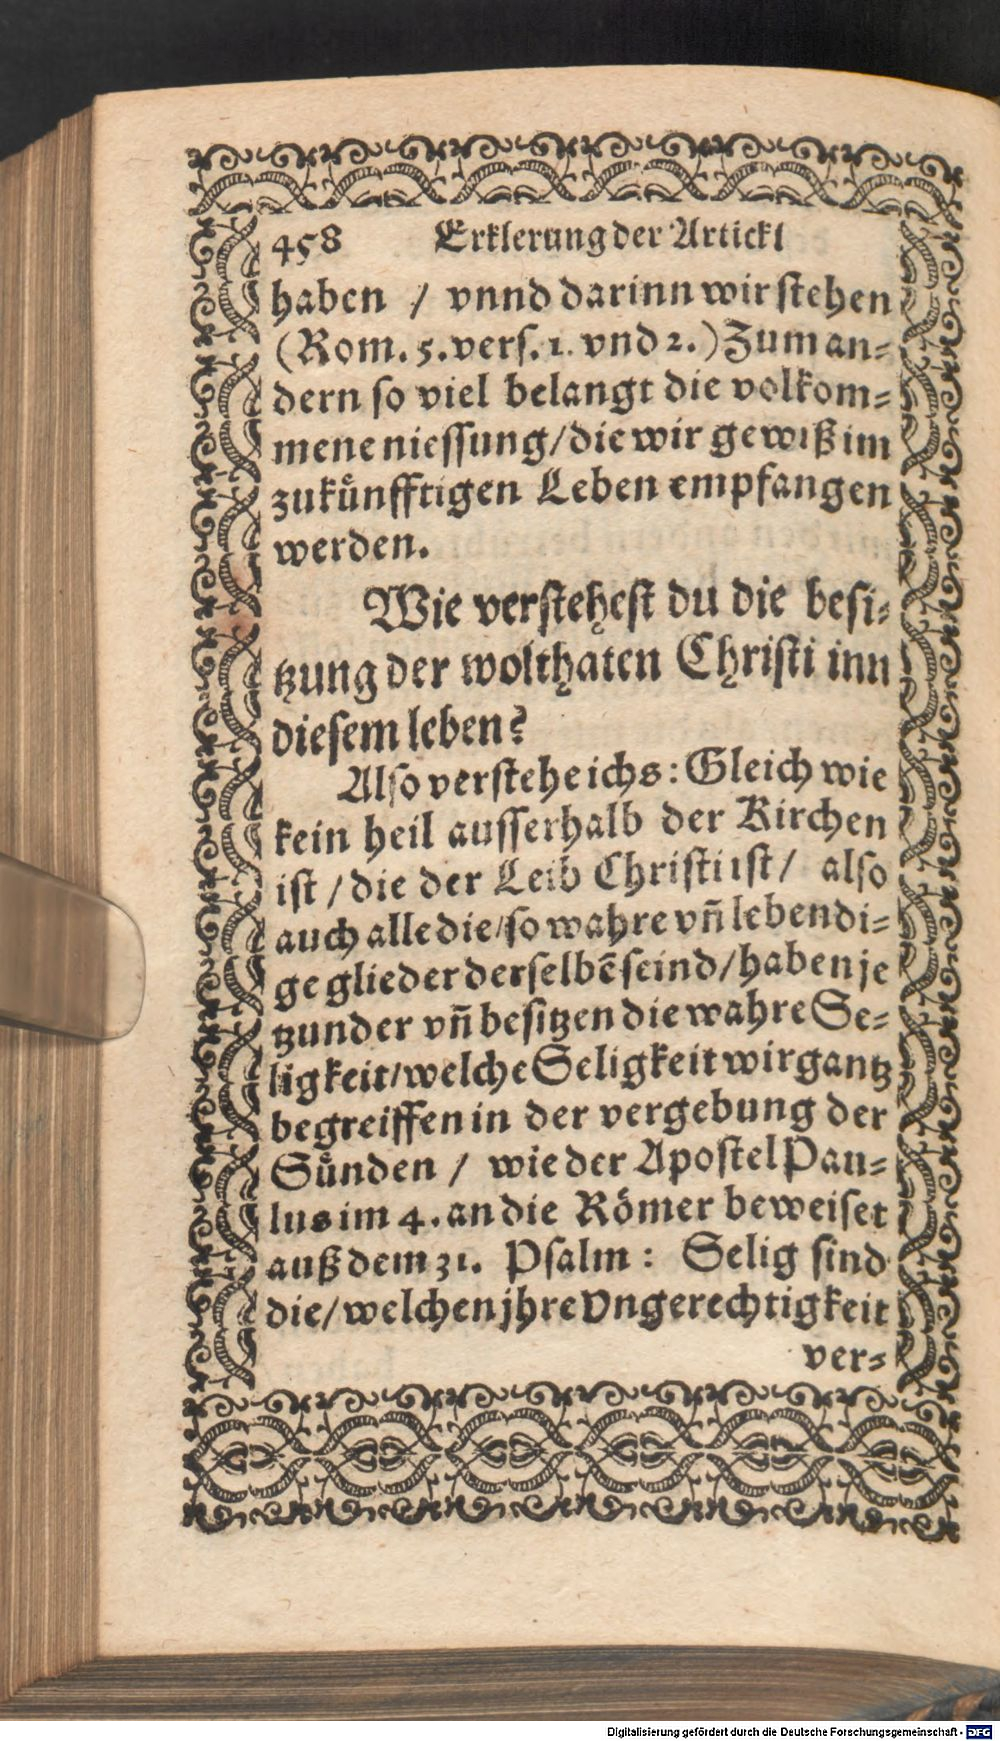 458 Erklerung der Artickl
haben / vnnd darinn wir stehen
(Rom. 5. vers. 1. vnd 2.) Zum an=
dern so viel belangt die volkom=
mene niessung / die wir gewiß im
zukuͤnfftigen Leben empfangen
werden.
Wie verstehest du die besi=
tzung der wolthaten Christi inn
diesem leben?
Also verstehe ichs: Gleich wie
kein heil ausserhalb der Kirchen
ist / die der Leib Christi ist / also
auch alle die / so wahre vñ lebendi=
ge glieder derselbẽ seind / haben je
tzunder vñ besitzen die wahre Se=
ligkeit / welche Seligkeit wir gantz
begreiffen in der vergebung der
Suͤnden / wie der Apostel Pau=
lus im 4. an die Römer beweiset
auß dem 31. Psalm: Selig sind
die / welchen jhre Vngerechtigkeit
ver=
Digitalisierung gefördert durch die Deutsche Forschungsgemeinschaft - DFG